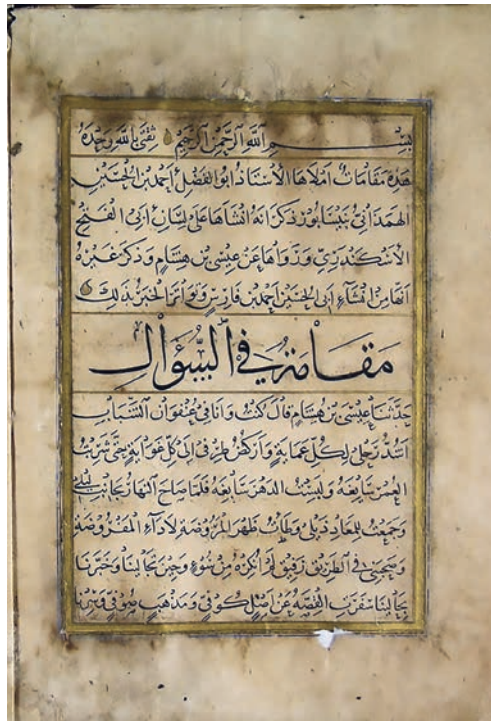 بسم الله الرحمن الرحيم ثقتي بالله وحده
هذه مقامات املاها الأستاذ ابو الفضل احمد بن الحسين
الهمذاني بنيسابور ذكر انه انشاها على لسان ابي الفتح
الأسكندري ورواها عن عيسى بن هشام وذكر غيره
انها من انشاء ابي الحسين احمد بن فارس وتواتر الخبر بذلك
مقامة في السؤال
حدثنا عيسى بن هشام قال كنت وانا في عنفوان الشباب
اشد رحلي لكل عماية واركض طرفي الى كل غواية حتى شربت
العمر سايغه ولبست الدهر سابغه فلما صاح النهار بجانب ليلي
وجمعت للمعاد ذيلي وطئت ظهر المروضة لاداء المفروضة
وصحبني في الطريق رفيق لم انكره من سوء وحين تجالينا وخبرنا
بحالينا سفرت القصه عن اصل كوفي ومذهب صوفي وسرنا